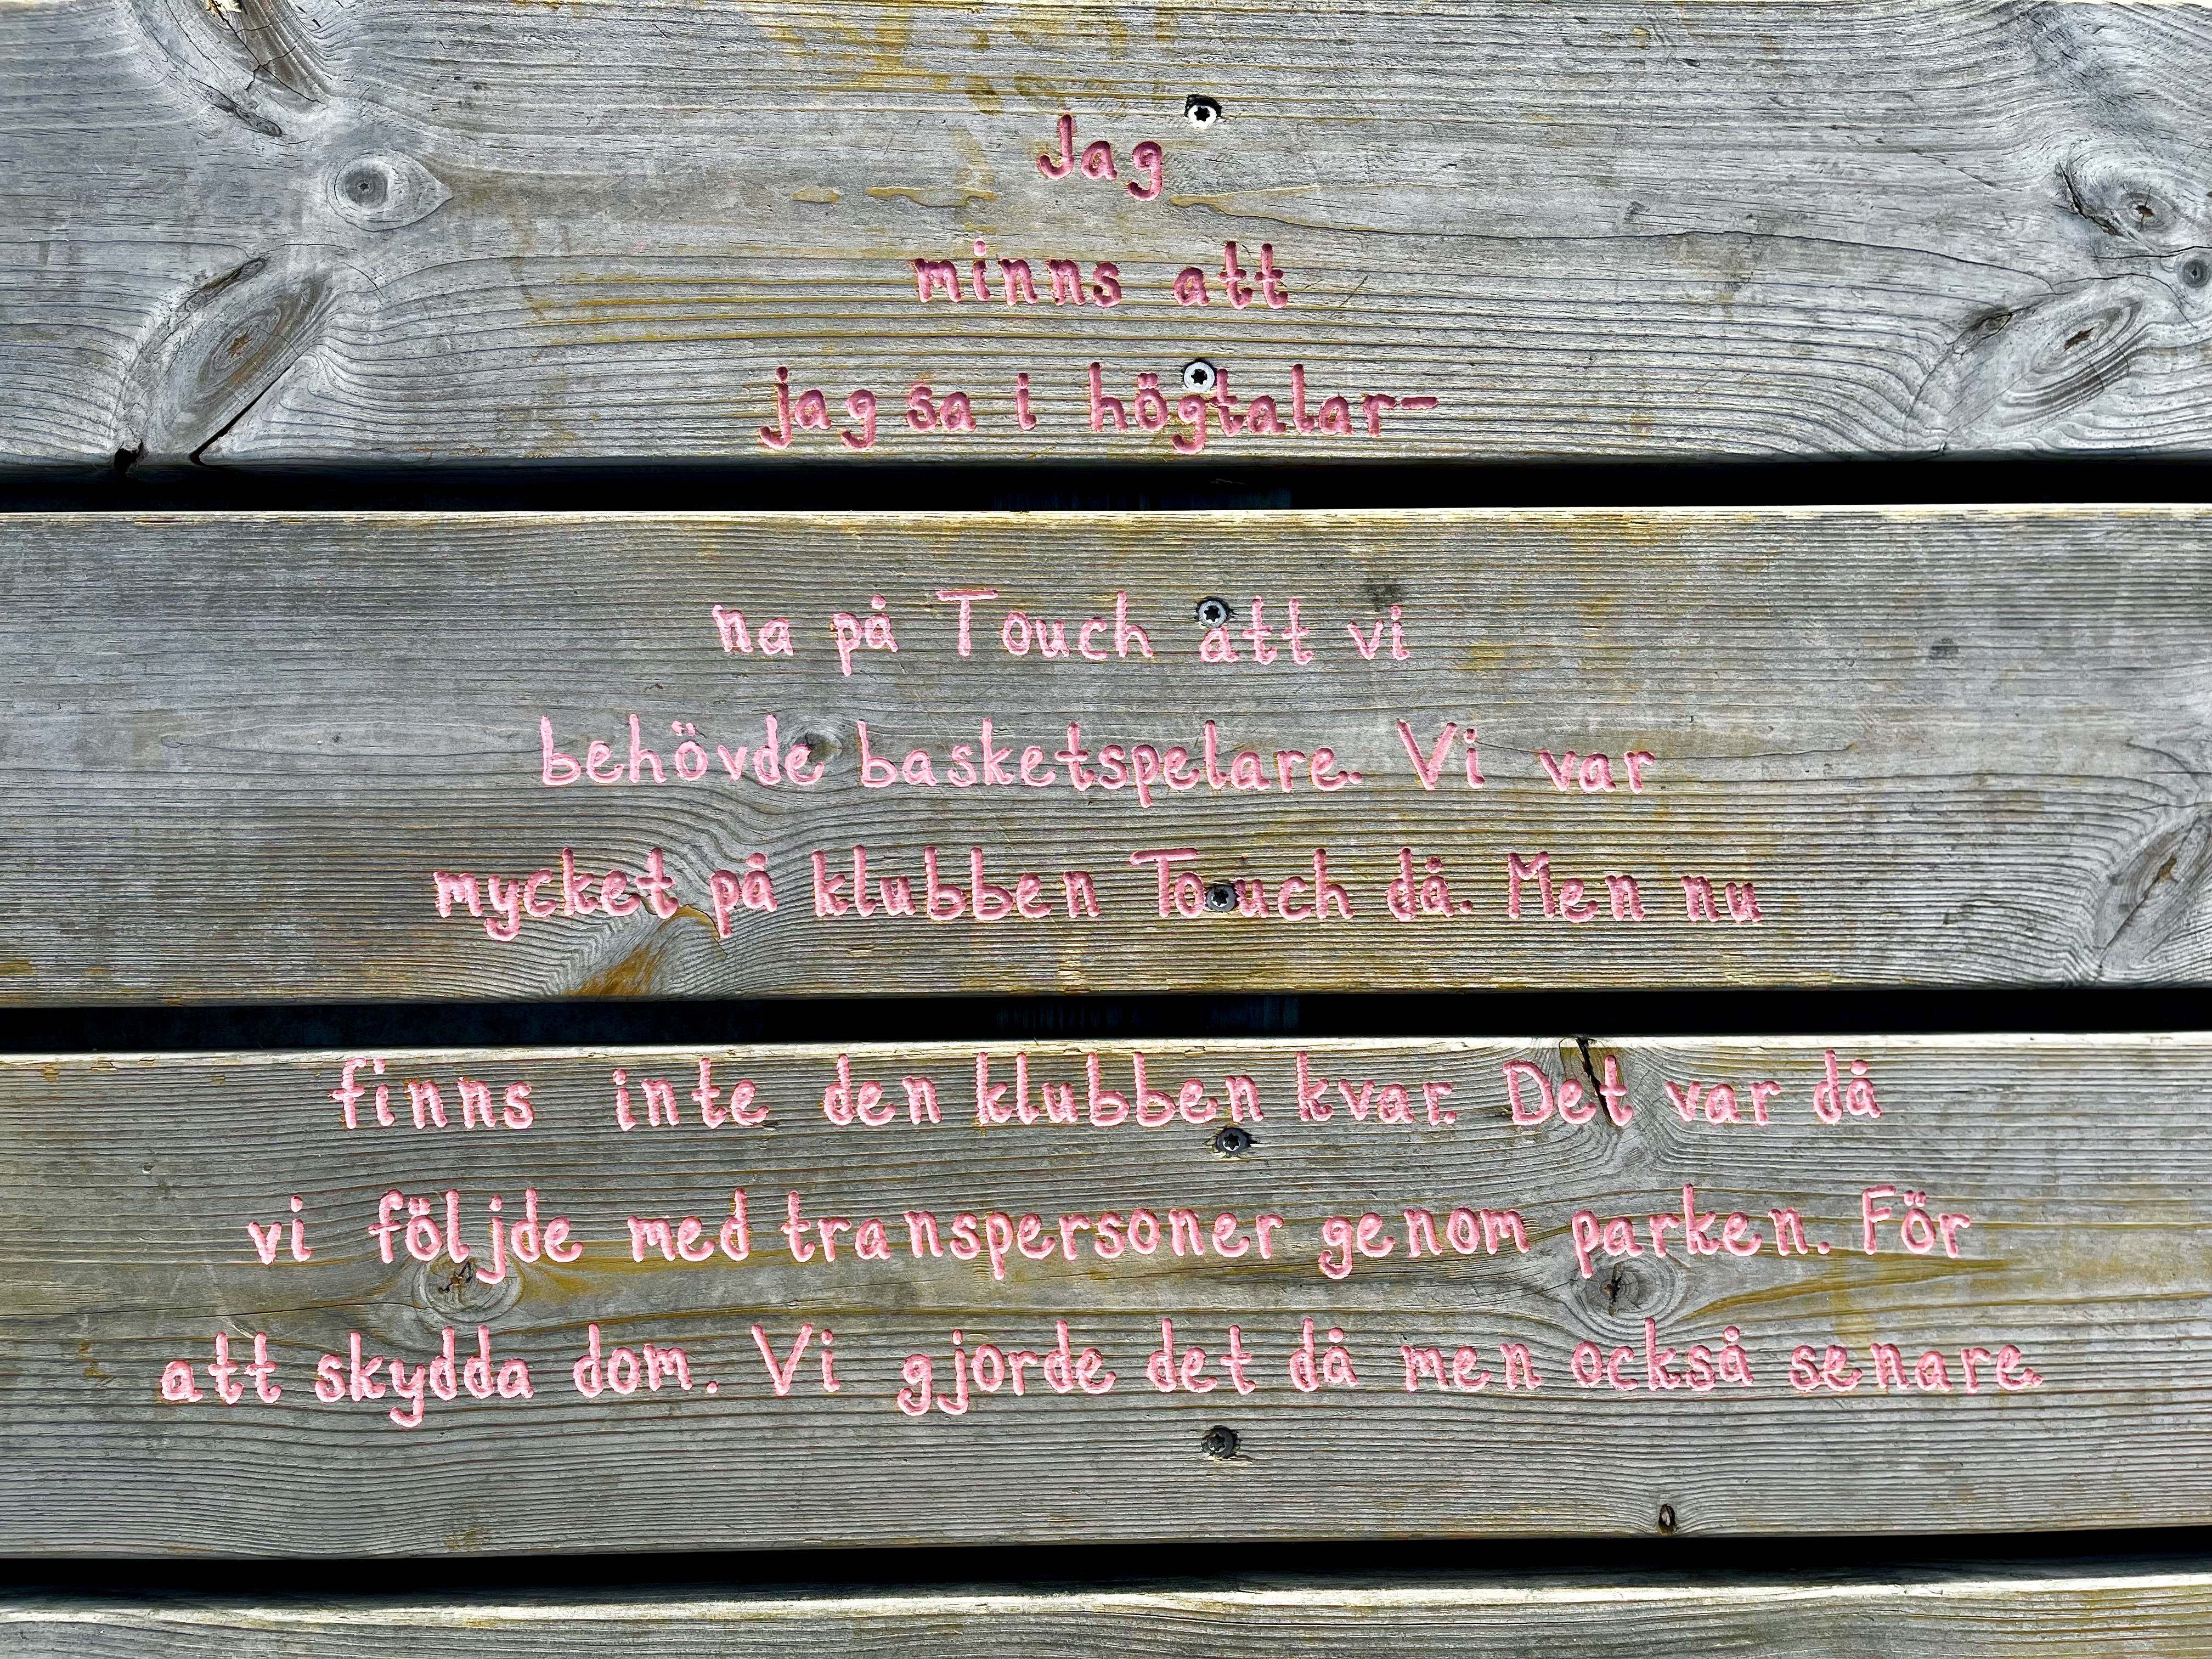 Jag
minns att
jag sa i högtalar-
na på Touch att vi
behövde basketspelare. Vi var
mycket på klubben Touch då. Men nu
finns inte den klubben kvar. Det var då
vi följde med transpersoner genom parken. För
att skydda dom. Vi gjorde det då men också senare.